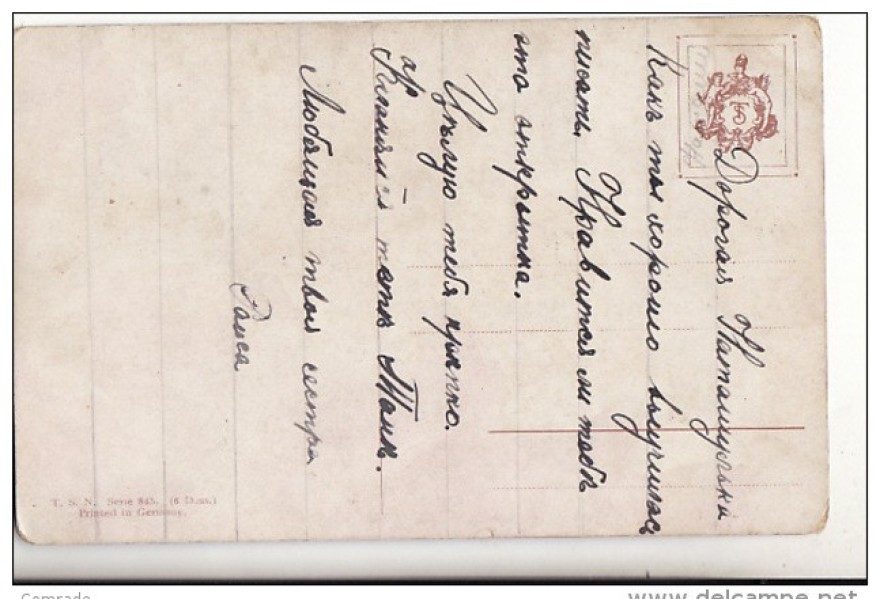 Дорогая Наташурька
Какъ ты хорошо выучилась
писать. Нравится ли тебѣ
эта открытка.
Цѣлую тебя крѣпко.
Кланяйся тетѣ Тане.
Любящая твоя сестра
Раиса
T. S. N. Serie 845. (6 Dess.)
Printed in Germany.
TS
Comrade
www.delcampe.net